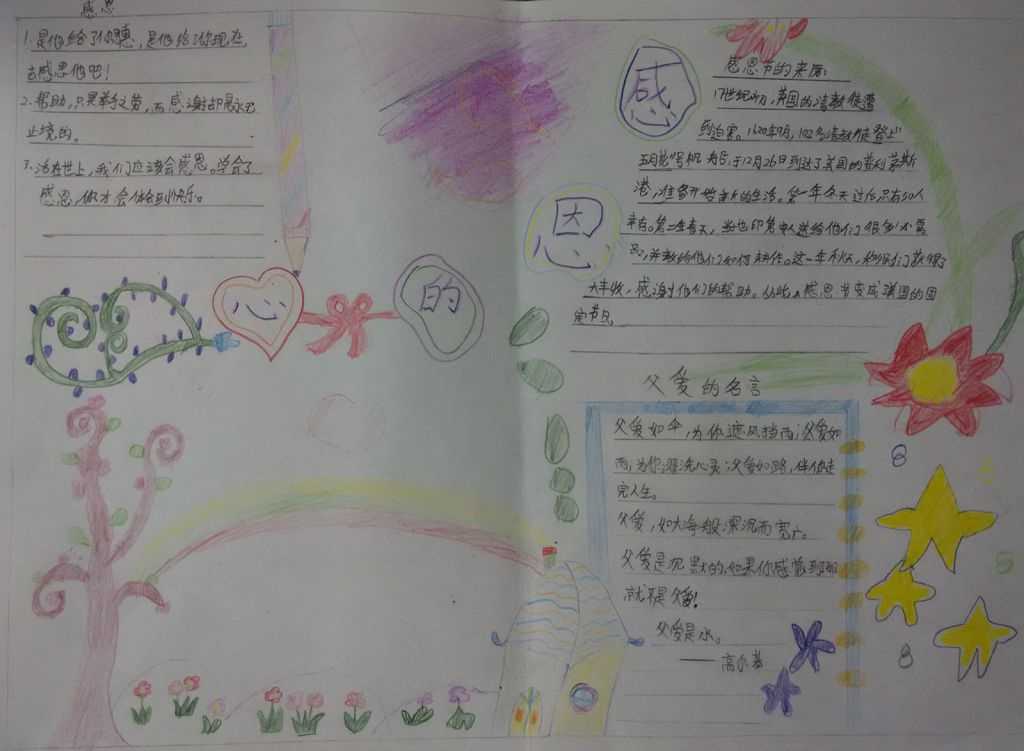 感恩
1. 是他给了你，是他给了你现在，
去感恩他吧！
2. 帮助，只是举手之劳，而感谢却是永无
止境的。
3. 活在世上，我们应该会感恩。学会了
感恩，你才会体会到快乐。
心
的
感
恩
感恩节的来历：
17世纪初，英国的清教徒遭
到迫害。1620年9月，102名清教徒登上
五月花号帆船，于12月26日到达了美国的普利茅斯
港，准备开始新的生活。第一年冬天过后只有50人
幸存。第二年春天，当地印第安人送给他们很多必需
品，并教给他们如何耕作。这一年秋天，移民们获得了
大丰收，感谢他们的帮助。从此，感恩节变成美国的固
定节日
父爱的名言
父爱如伞，为你遮风挡雨；父爱如
雨，为你濯洗心灵；父爱如路，伴你走
完人生。
父爱，如大海般深沉而宽广。
父爱是沉默的，如果你感觉到那
就不是父爱！
父爱是水。
——高尔基